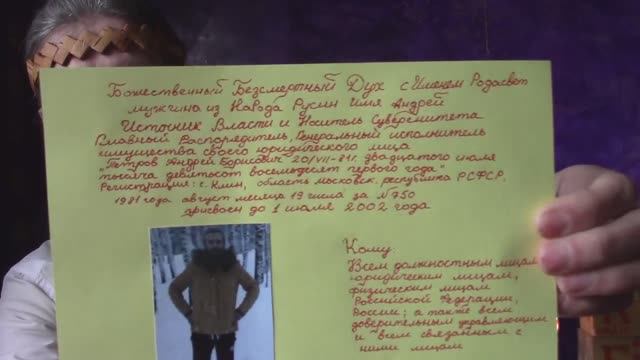 Божественный Безсмертный Дух с Именем Родасвет
мужчина из Народа Русин имя Андрей
Источник Власти и Носитель Суверенитета
Главный Распорядитель, Генеральный исполнитель
имущества своего юридического лица
"Петров Андрей Борисович 20/VII-81г. двадцатого июля
тысяча девятьсот восемьдесят первого года"
Регистрация: г. Клин, область московск. республика РСФСР,
1981 года август месяца 19 числа за №750
присвоен до 1 июля 2002 года
Кому:
Всем должностным лицам
юридическим лицам,
физическим лицам
Российской Федерации,
России; а также всем
доверительным управляющим
и всем связанным с
ними лицам